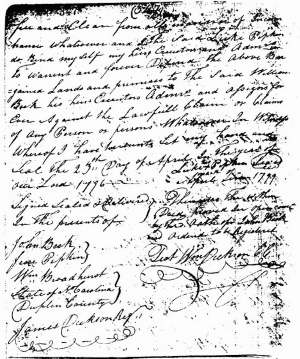 free and Clear from
hance Whatever and I the Said Luke Pipkin
do Bind myself my heirs Executors and Adm
to Warrent and forever Defend the Above Bar
gained Lands and premises to the Said William
Beck his heirs Executors Admrs and assigns for
Ever Against the Lawfull Claim or Claims
of Any Person or persons Whatsoever In Witness
Whereof I have hereunto Set my hand and
Seal the 23rd Day of April In the year of
our Lord 1796
Luke Pipkin Seal
Signed Sealed & Delivered
In the presents of
April Term 1799
John Beck
Jesse Pipkin
Wm Broadhurst
State of N Carolina
Duplin County
Then was the within
Deed proved in open Court
by the Oath of John Beck
and Ordered to be Registered
Test Wm Dickson CC
James Dickson Regr